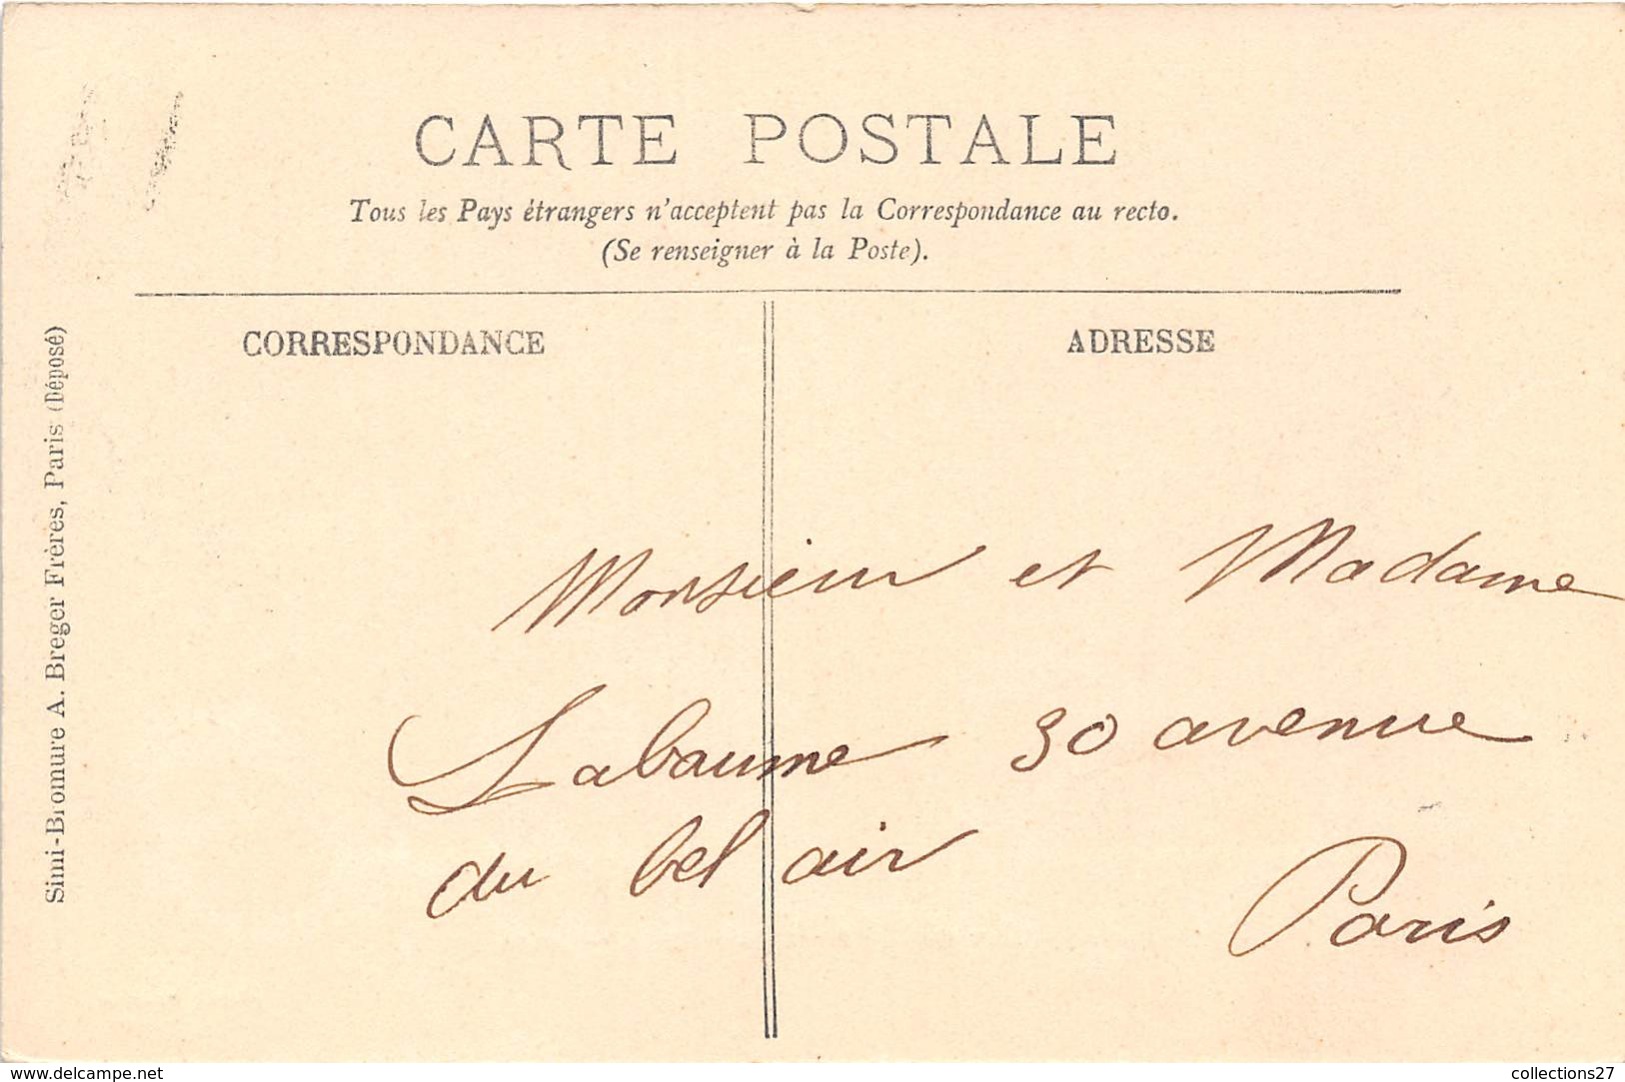 CARTE POSTALE
Tous les Pays étrangers n'acceptent pas la Correspondance au recto.
(Se renseigner à la Poste).
CORRESPONDANCE
ADRESSE
Simi-Bromure A. Breger Frères, Paris (Déposé)
Monsieur et Madame
Labaume 30 avenue
du bel air
Paris
www.delcampe.net
collections27